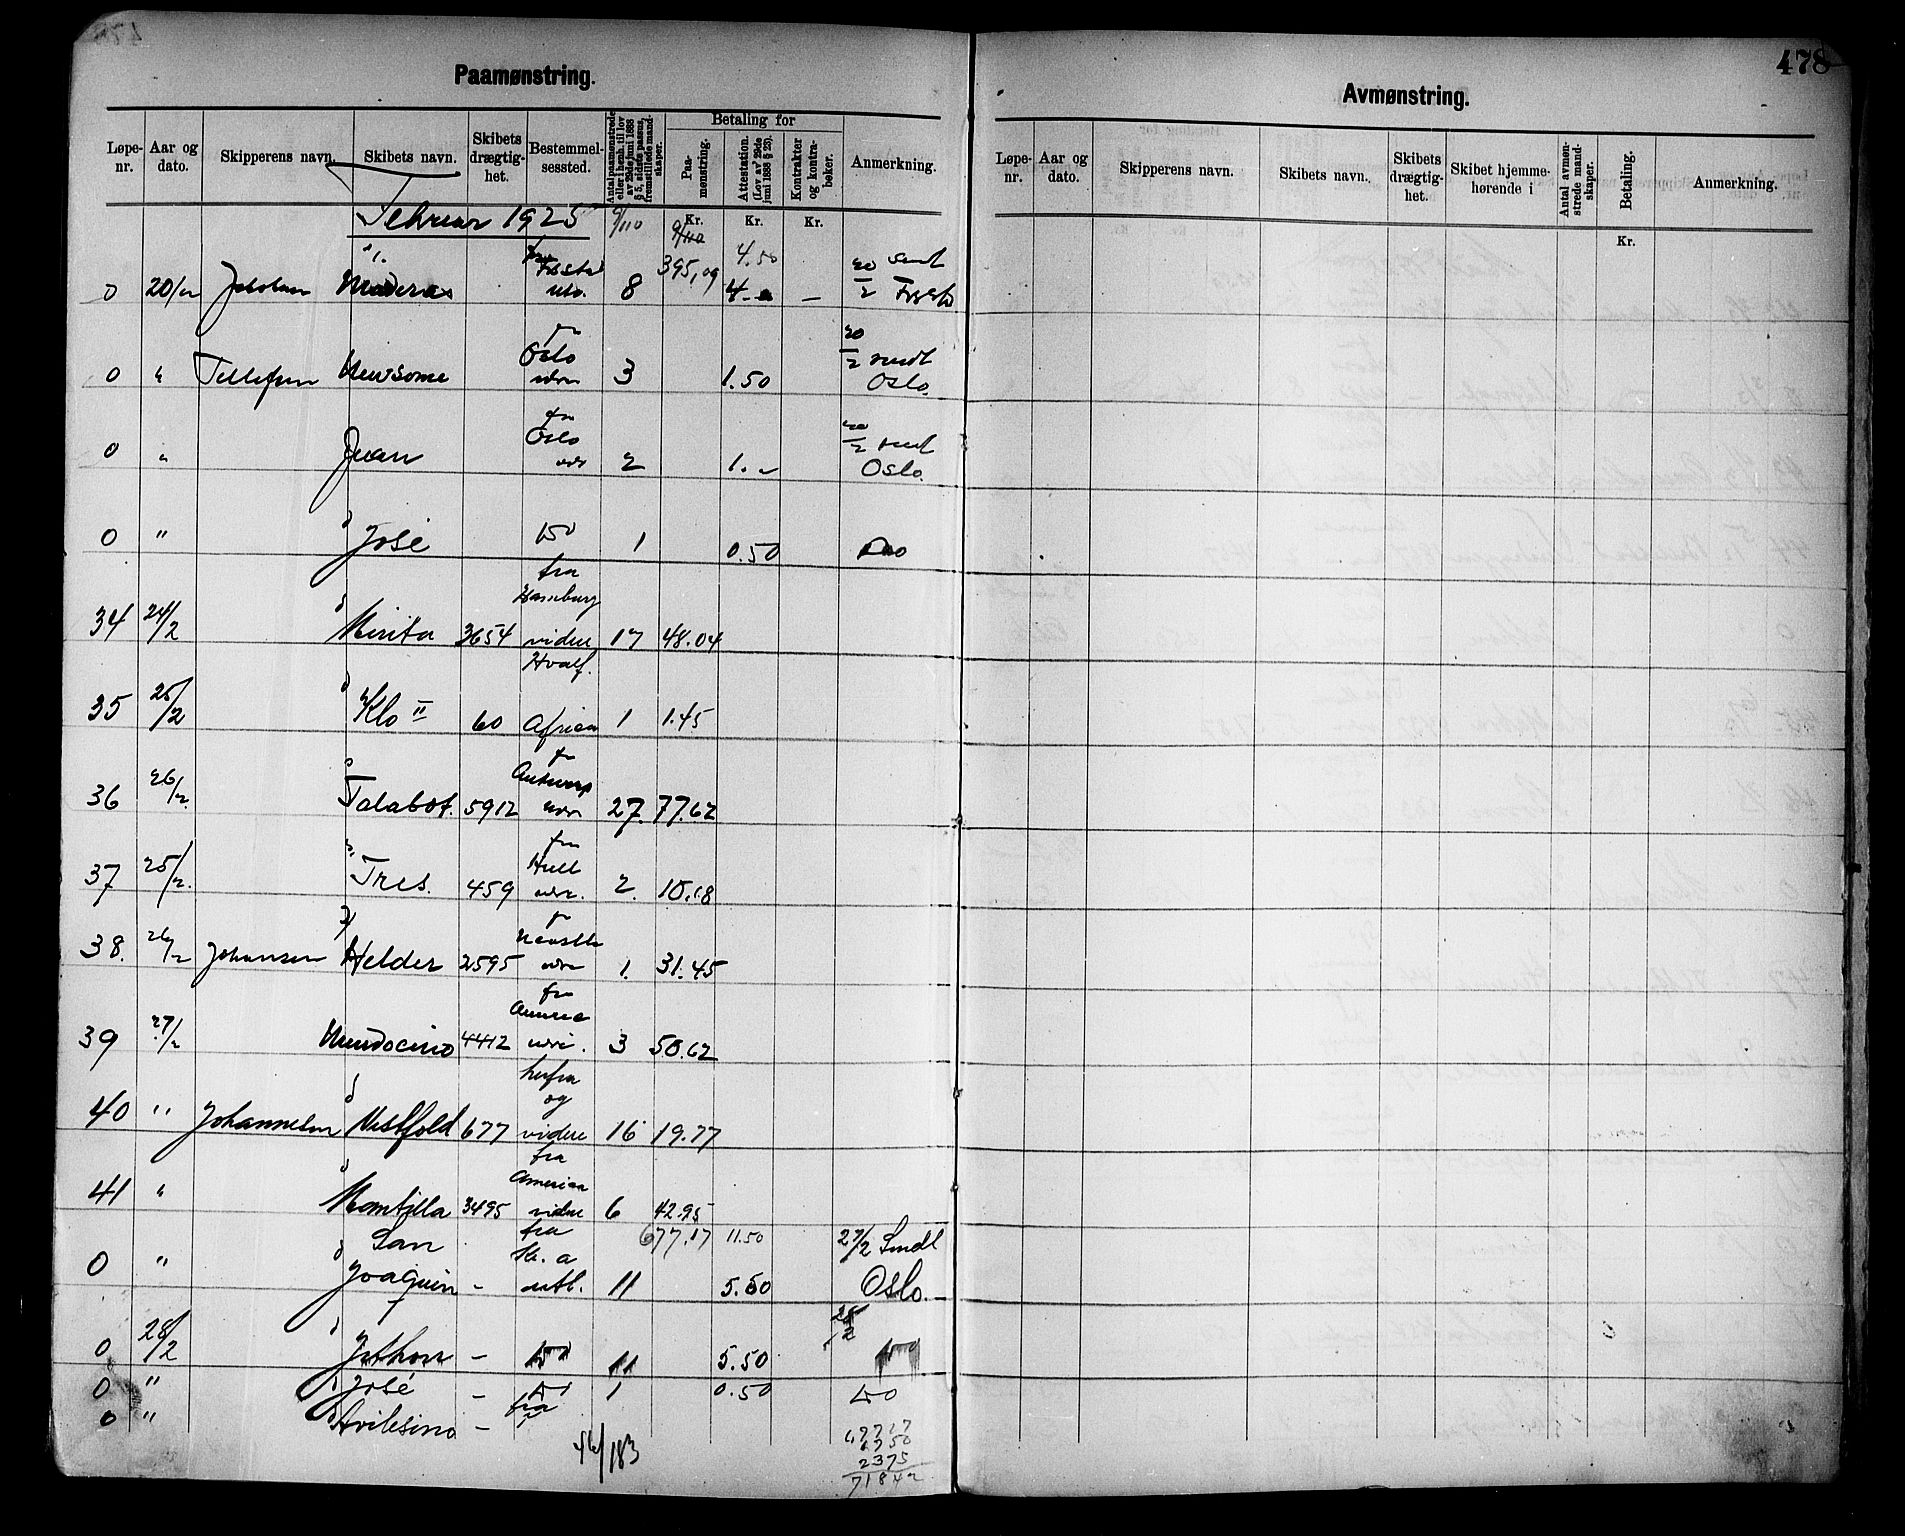 478
Paamønstring.
Avmønstring.
Løpe-nr. Aar og dato. Skipperens navn. Skibets navn. Skibets drægtig-het. Bestemmel-sessted. Antal paamønstrede eller i henh. til lov av 29de juni 1888 § 5, sidste passus, fremstillede mand-skaper. Betaling for Paa-mønstring. Attestation. (Lov av 29de juni 1888 § 25). Kontrakter og kontra-bøker. Anmerkning.
Løpe-nr. Aar og dato. Skipperens navn. Skibets navn. Skibets drægtig-het. Skibet hjemme-hørende i Antal avmøn-strede mand-skaper. Betaling. Anmerkning.
Kr. Kr. Kr.
Kr.
Februar 1925 9/110 9/110
395,09 4.50
0 20/2 Jakobsen Maderas 8 4.- - 20/2 sendt
0 " Tellefsen Newsome fra Oslo 3 1.50 20/2 sendt Oslo.
0 " Juan fra Oslo 2 1.- 20/2 sendt Oslo.
0 " José do 1 0.50 do
34 24/2 Mirita 3654 fra Hamburg videre Hvalf. 17 48.04
35 25/2 Klo II 60 Africa 1 1.45
36 26/2 Talabot. 5912 fr Antwerp 27. 77.62
37 25/2. Tres. 459 fra Hull 2. 10.18
38. 26/2 Johansen Helder 2595 fr 1. 31.45
39 27/2 Mendocino 4412 fra 3 50.62
40 " Johannesen Vestfold 677 herfra og videre 16 19.77
41 " Montilla 3495 fra America videre 6 42.95
677.17 11.50
0 " San Joaquin - fra utl. 11 5.50 27/2 Sendt Oslo.
0 28/2 Jethon - do 11 5.50 28/2 do
0 " José - do 1 0.50 do
0 " Avilesino - fra
46/183
67717
1750
2375
71842